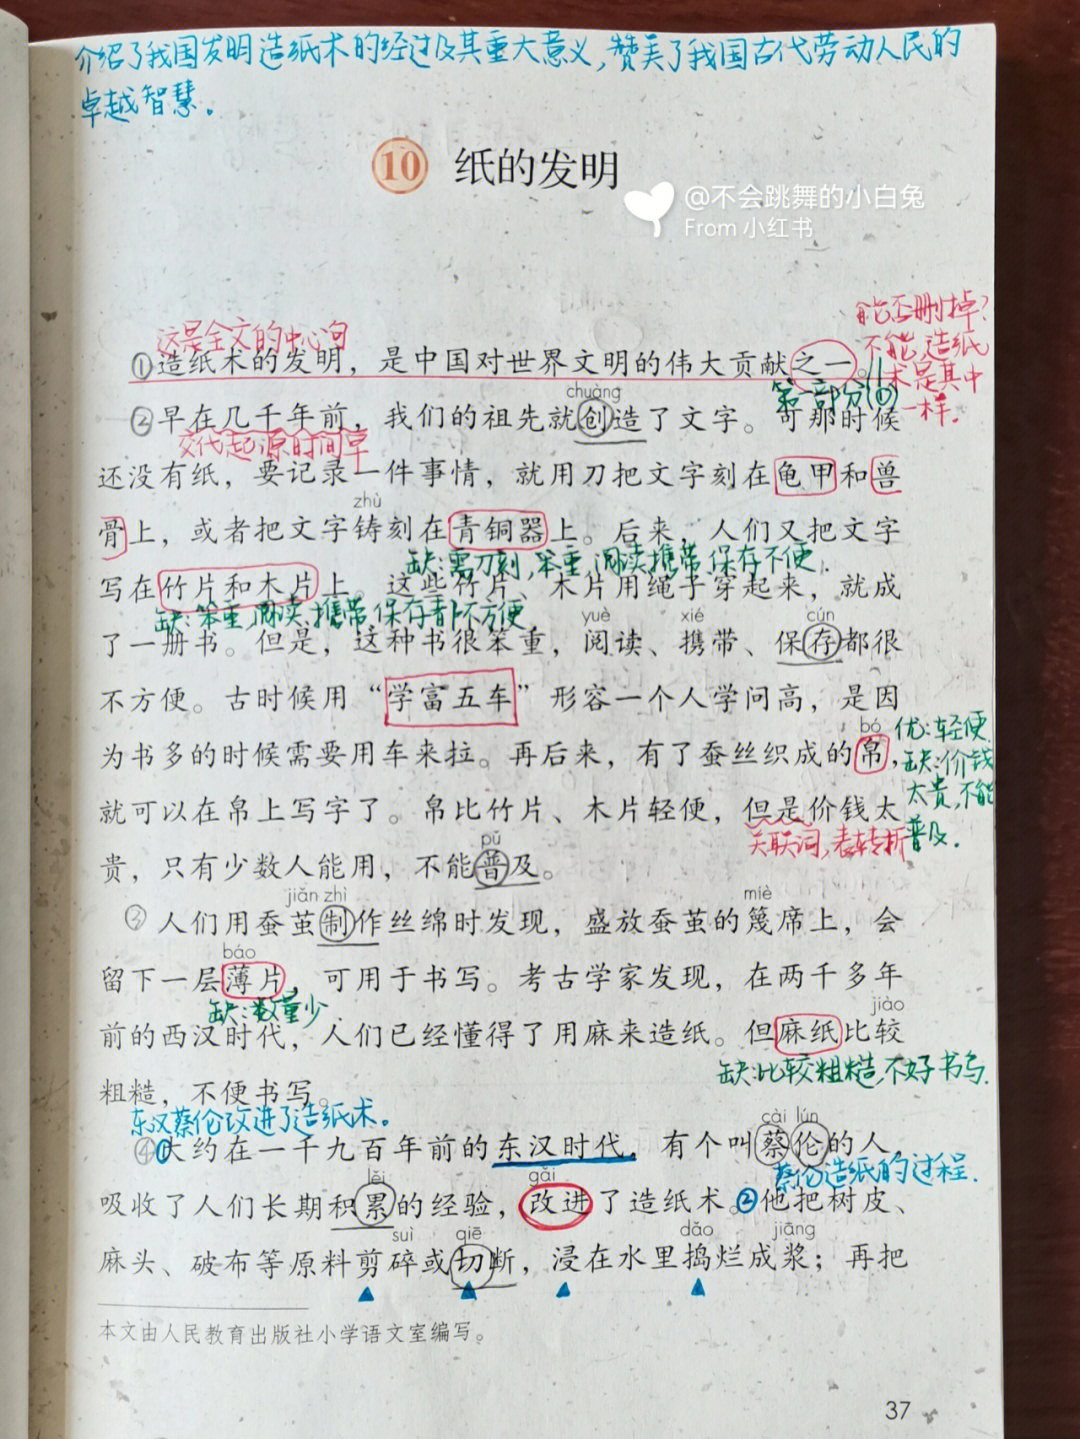 介绍了我国发明造纸术的经过及其重大意义,赞美了我国古代劳动人民的
卓越智慧。
10 纸的发明
@不会跳舞的小白兔
From 小红书
能否删掉?
这是全文的中心句
不能,造纸
①造纸术的发明，是中国对世界文明的伟大贡献之一。
术是其中
第一部分(1)
一样.
chuàng
②早在几千年前，我们的祖先就创造了文字。可那时候
交代起源时间早
还没有纸，要记录一件事情，就用刀把文字刻在龟甲和兽
zhù
骨上，或者把文字铸刻在青铜器上。后来，人们又把文字
缺:需刀刻,笨重,阅读,携带,保存不便.
写在竹片和木片上。这些竹片、木片用绳子穿起来，就成
缺:笨重,阅读,携带,保存都不方便
yuè xié cún
了一册书。但是，这种书很笨重，阅读、携带、保存都很
不方便。古时候用“学富五车”形容一个人学问高，是因
bó
优:轻便
为书多的时候需要用车来拉。再后来，有了蚕丝织成的帛，
缺:价钱
太贵,不能
就可以在帛上写字了。帛比竹片、木片轻便，但是价钱太
关联词,表转折
普及.
pǔ
贵，只有少数人能用，不能普及。
jiǎn zhì miè
③人们用蚕茧制作丝绵时发现，盛放蚕茧的篾席上，会
báo
留下一层薄片，可用于书写。考古学家发现，在两千多年
缺:数量少
jiào
前的西汉时代，人们已经懂得了用麻来造纸。但麻纸比较
缺:比较粗糙,不好书写.
粗糙，不便书写。
东汉蔡伦改进了造纸术。
cài lún
④①大约在一千九百年前的东汉时代，有个叫蔡伦的人
蔡伦造纸的过程.
lěi gǎi
吸收了人们长期积累的经验，改进了造纸术。②他把树皮、
suì qiē dǎo jiāng
麻头、破布等原料剪碎或切断，浸在水里捣烂成浆；再把
本文由人民教育出版社小学语文室编写。
37